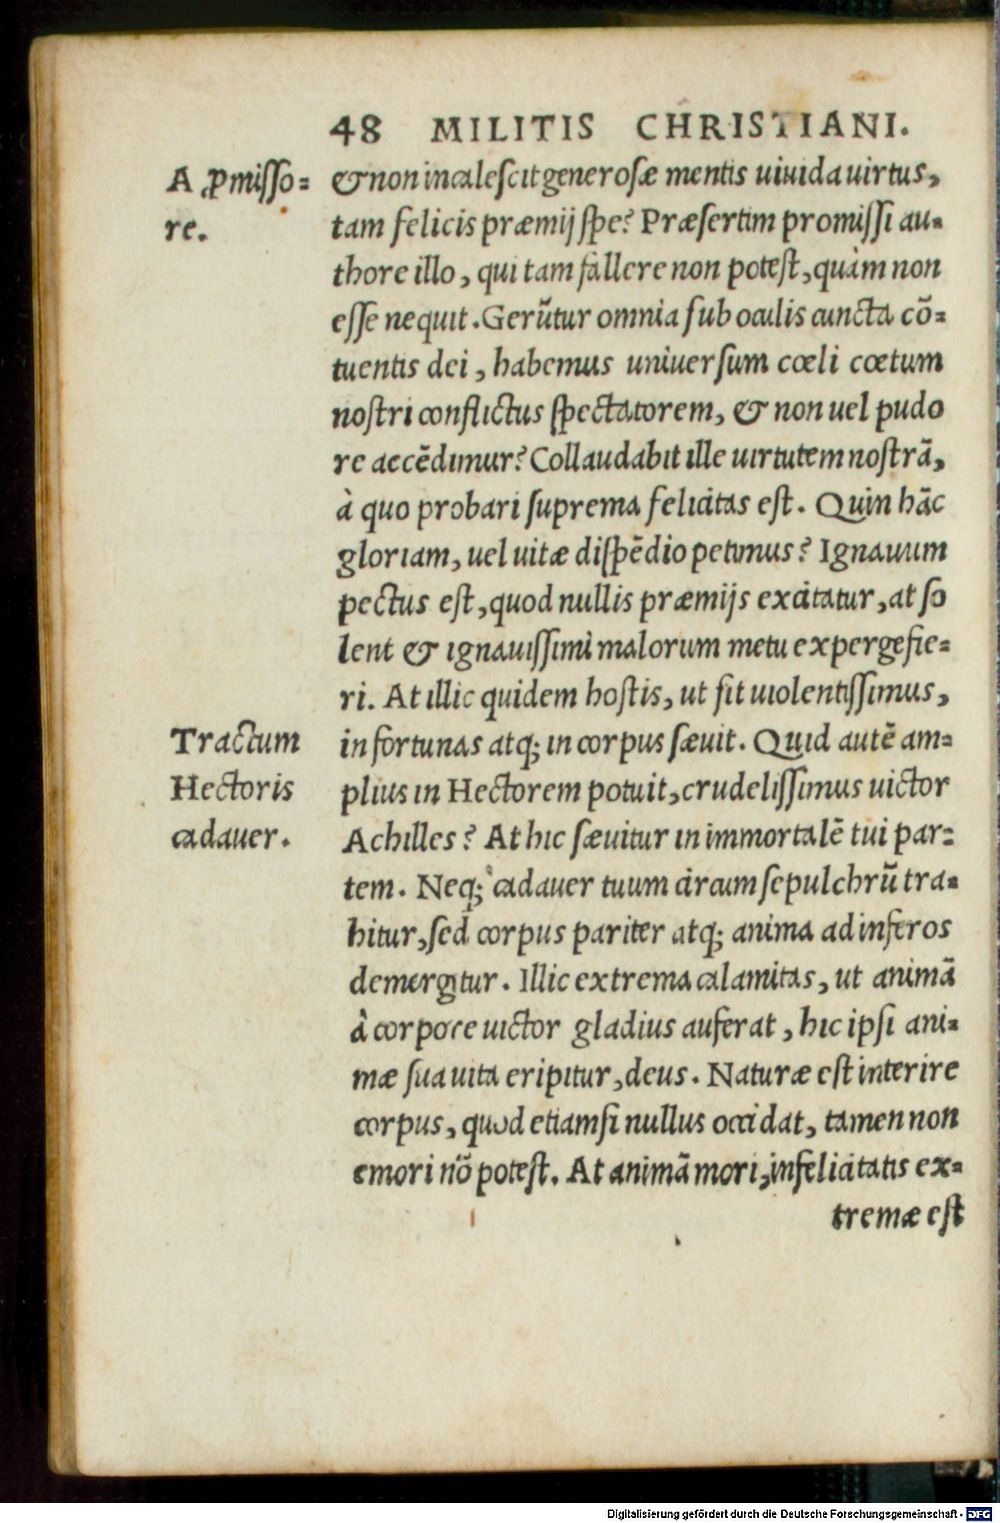 48 MILITIS CHRISTIANI.
A ꝓmisso=
re.
& non incalescit generosæ mentis uiuida uirtus,
tam felicis præmij spe? Præsertim promissi au=
thore illo, qui tam fallere non potest, quàm non
esse nequit. Gerũtur omnia sub oculis cuncta cõ=
tuentis dei, habemus uniuersum cœli cœtum
nostri conflictus spectatorem, & non uel pudo
re accẽdimur? Collaudabit ille uirtutem nostrã,
à quo probari suprema felicitas est. Quin hãc
gloriam, uel uitæ dispẽdio petimus? Ignauum
pectus est, quod nullis præmijs excitatur, at so
lent & ignauissimi malorum metu expergefie=
ri. At illic quidem hostis, ut sit uiolentissimus,
Tractum
Hectoris
cadauer.
in fortunas atq; in corpus sæuit. Quid autẽ am=
plius in Hectorem potuit, crudelissimus uictor
Achilles? At hic sæuitur in immortalẽ tui par=
tem. Neq; cadauer tuum circum sepulchrũ tra=
hitur, sed corpus pariter atq; anima ad inferos
demergitur. Illic extrema calamitas, ut animã
à corpore uictor gladius auferat, hic ipsi ani=
mæ sua uita eripitur, deus. Naturæ est interire
corpus, quod etiamsi nullus occidat, tamen non
emori nõ potest. At animã mori, infelicitatis ex=
tremæ est
Digitalisierung gefördert durch die Deutsche Forschungsgemeinschaft - DFG